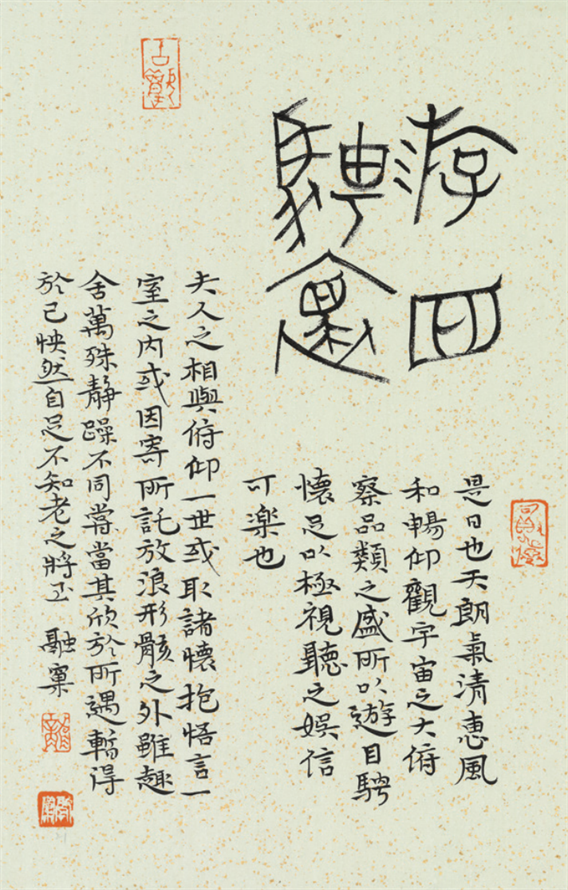 游目
騁褱
是日也天朗氣清惠風
和暢仰觀宇宙之大俯
察品類之盛所以遊目騁
懷足以極視聽之娛信
可楽也
夫人之相與俯仰一世或取諸懷抱悟言一
室之內或因寄所託放浪形骸之外雖趣
舍萬殊靜躁不同嘗當其欣於所遇暫得
於己怏然自足不知老之將至 融稾